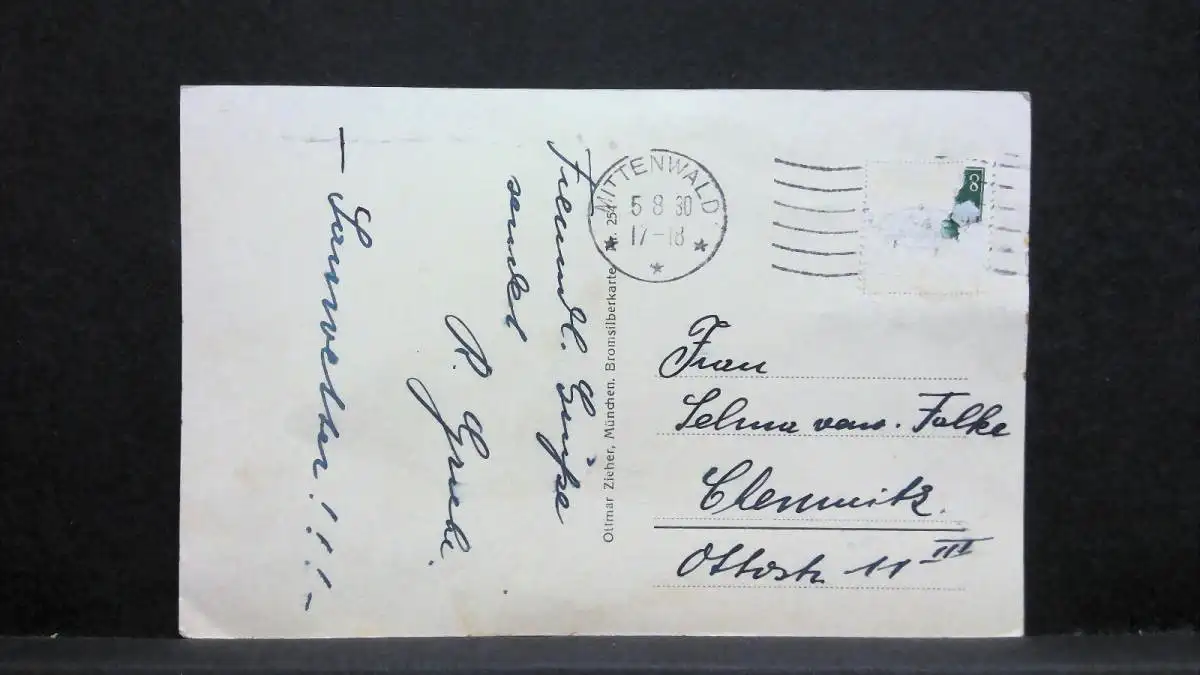 Freundl. Grüße
sendet
R.
— Sauwetter!!! —
Ottmar Zieher, München. Bromsilberkarte Nr. 251
MITTENWALD
5 8 30
17-18
8
Frau
Selma verw. Falke
Chemnitz.
Ottostr 11 III